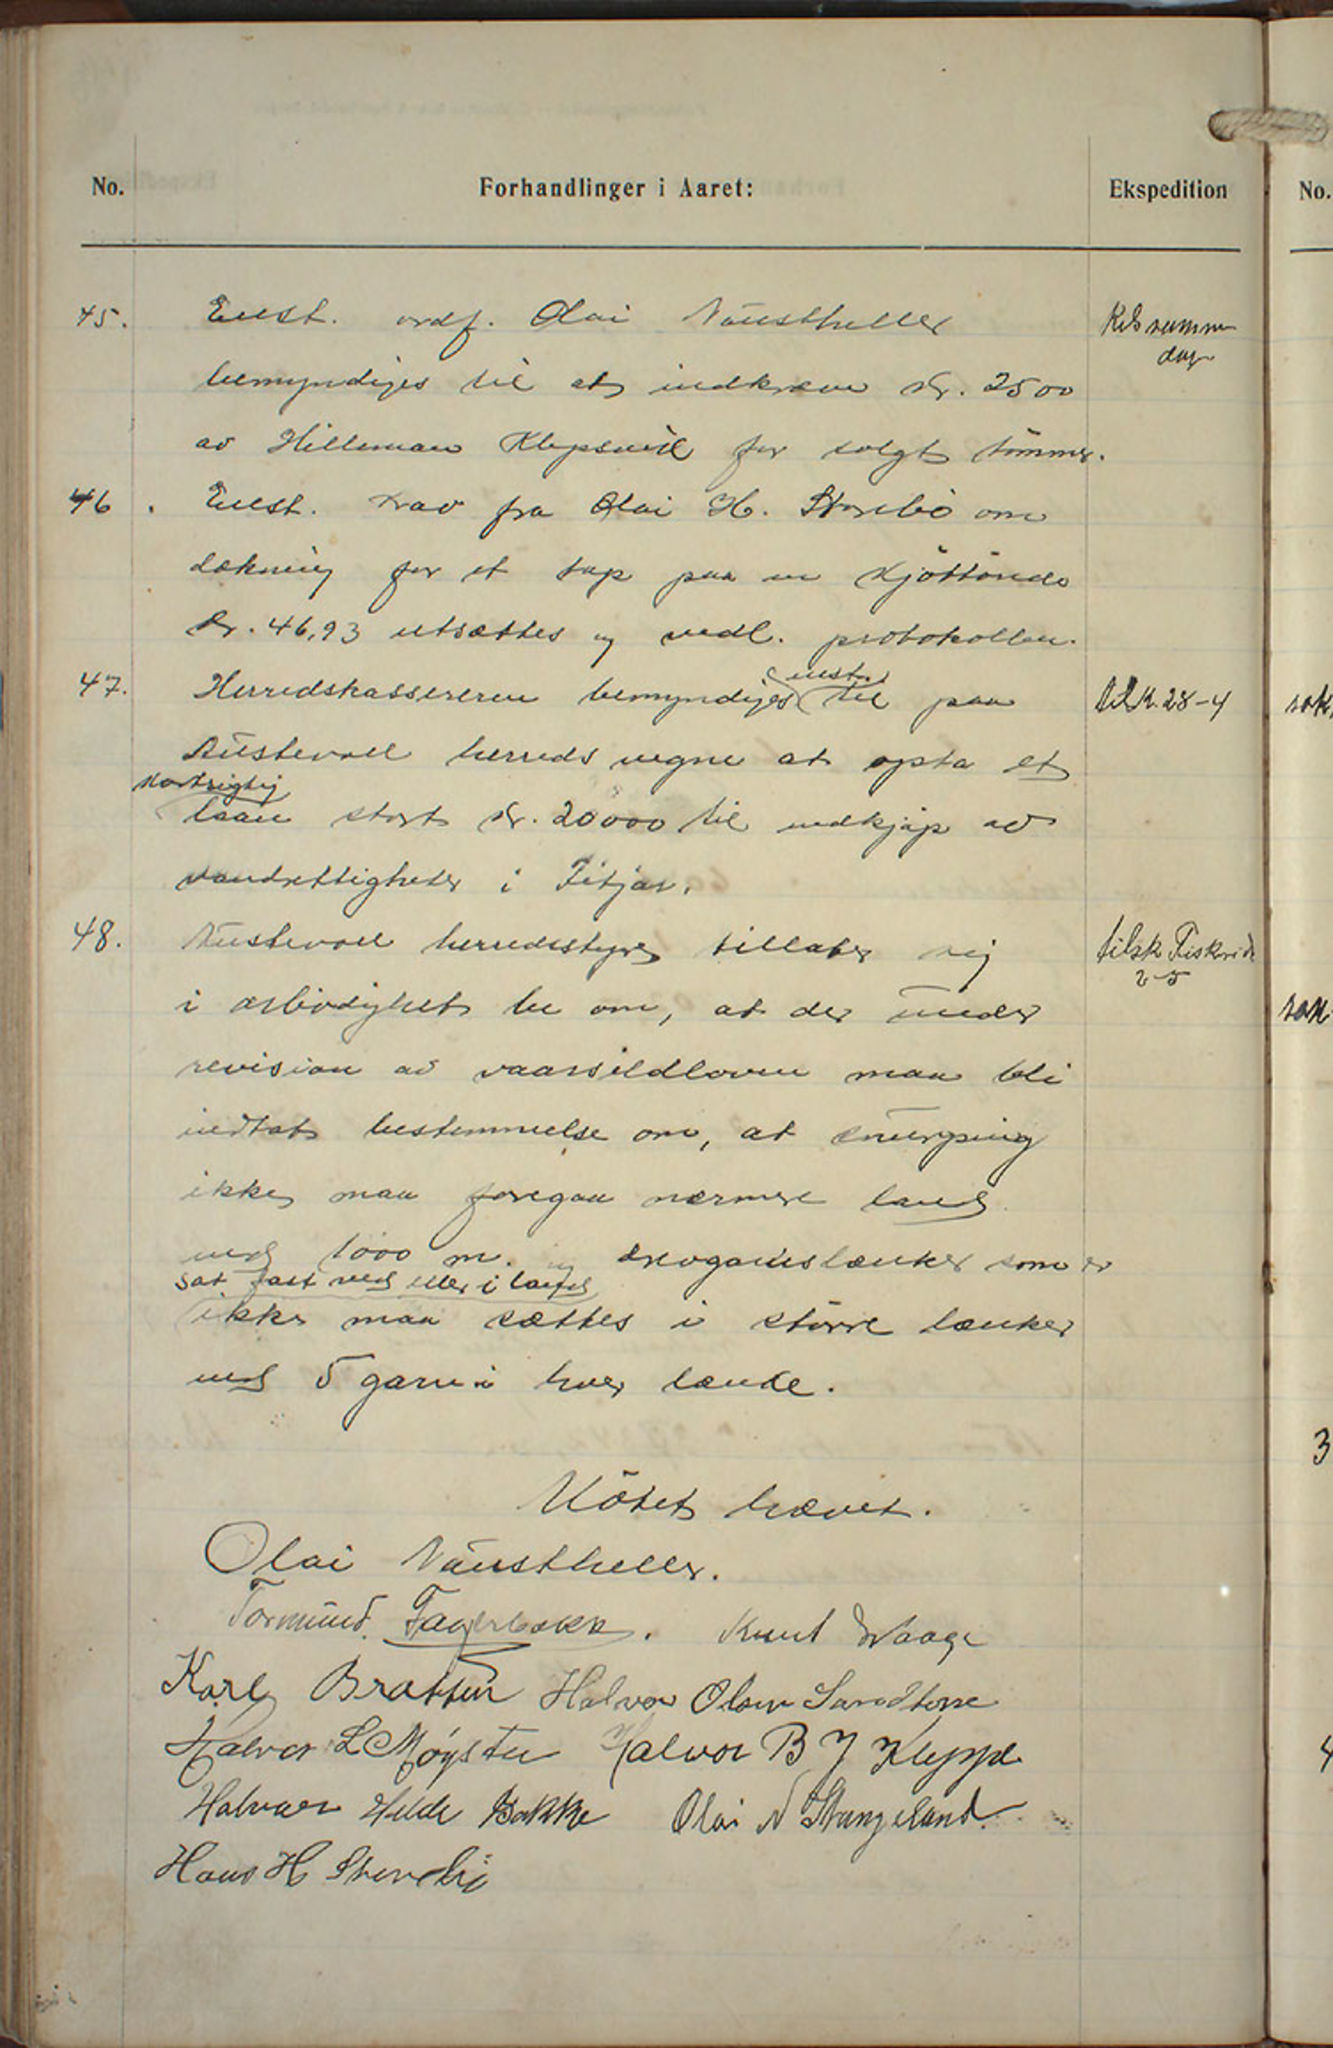 No. Forhandlinger i Aaret: Ekspedition No.
45. Enst. ordf. Olai Naustheller
bemyndiges til at indkræve kr. 2500
av Hilleman Klepsvik for solgt tømmer.
samme
dag
46. Enst. Krav fra Olai H. Storebø om
dækning for et tap paa en kjøttønde
kr. 46,93 utsættes og vedl. protokollen.
47. Herredskassereren bemyndiges enst. til paa
28-4
Austevoll herreds vegne at opta et
kortsigtig
laan stort kr. 20000 til indkjøp av
vandrettigheter i Fitjar.
48. Austevoll herredsstyre tillater sig
tilsk Fiskerid
2-5
i ærbødighet be om, at der under
revision av vaarsildloven maa bli
indtat bestemmelse om, at snurping
ikke maa foregaa nærmere land
end 1000 m. og drivgarnslænker som er
sat fast ved eller i land
ikke maa sættes i større lænker
end 5 garn i hver lænke.
Møtet hævet.
Olai Naustheller.
Tormund Fagerbakk. Knut Waage
Karl Bratten Halvor Olsen Sandtorv
Halvor L Møgster Halvor B J Kleppe
Halvor Helde Bakke Olai N Stangeland
Hans H Storebø
sak
sak
3
4